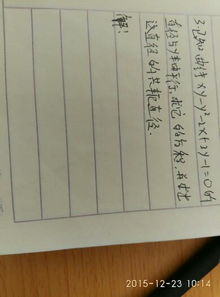 3.已知曲线 xy-y²-2x+2y-1=0的
直径与y轴平行,求它的方程,并求出
这直径的共轭直径.
解:
2015-12-23 10:14